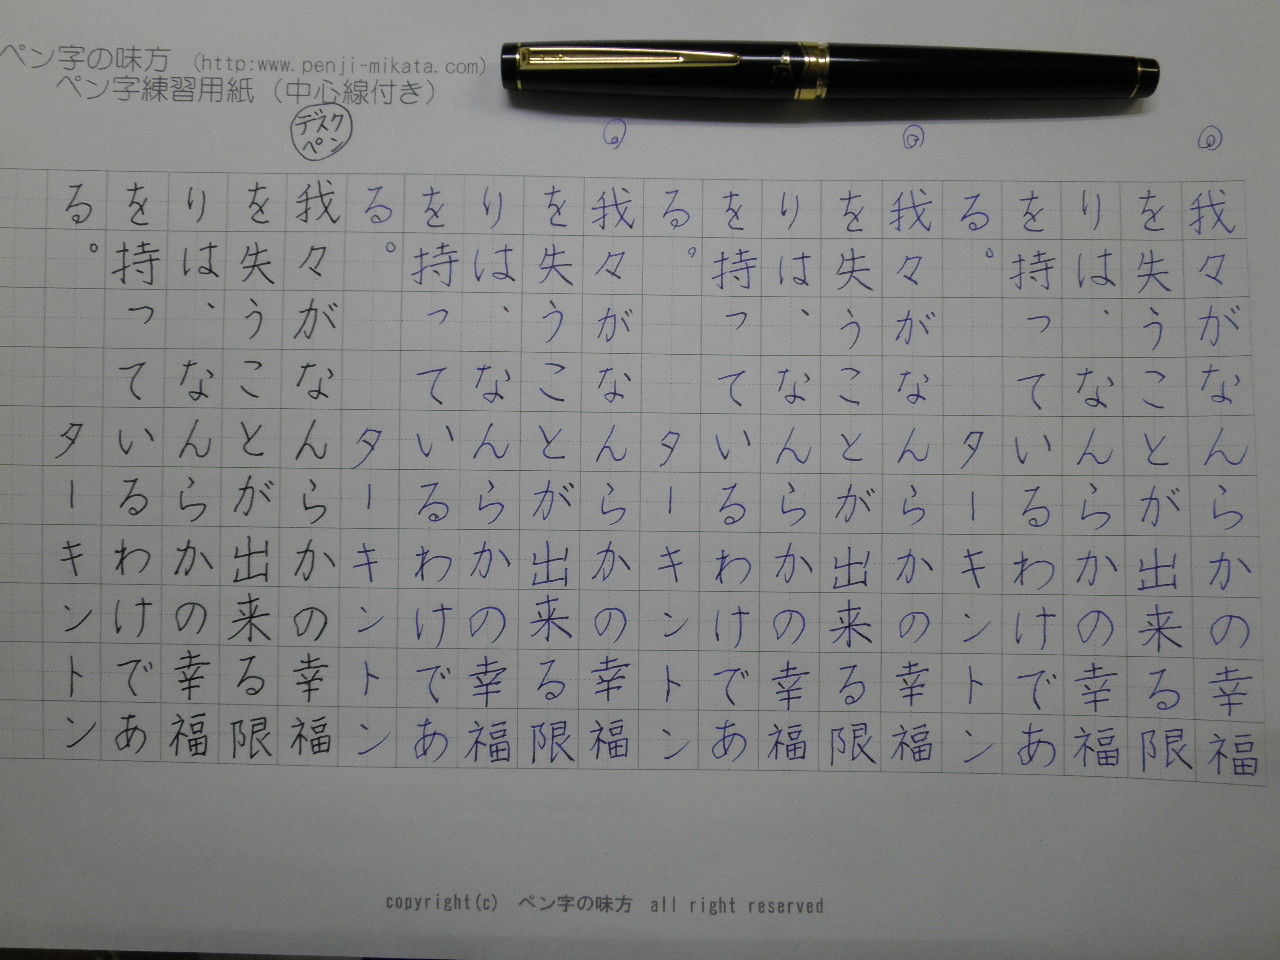 ペン字の味方 (http:www.penji-mikata.com)
ペン字練習用紙 (中心線付き)
デスク
ペン
我々がなんらかの幸福
を失うことが出来る限
りは、なんらかの幸福
を持っているわけであ
る。 ターキントン
我々がなんらかの幸福
を失うことが出来る限
りは、なんらかの幸福
を持っているわけであ
る。 ターキントン
我々がなんらかの幸福
を失うことが出来る限
りは、なんらかの幸福
を持っているわけであ
る。 ターキントン
我々がなんらかの幸福
を失うことが出来る限
りは、なんらかの幸福
を持っているわけであ
る。 ターキントン
copyright(c) ペン字の味方 all right reserved